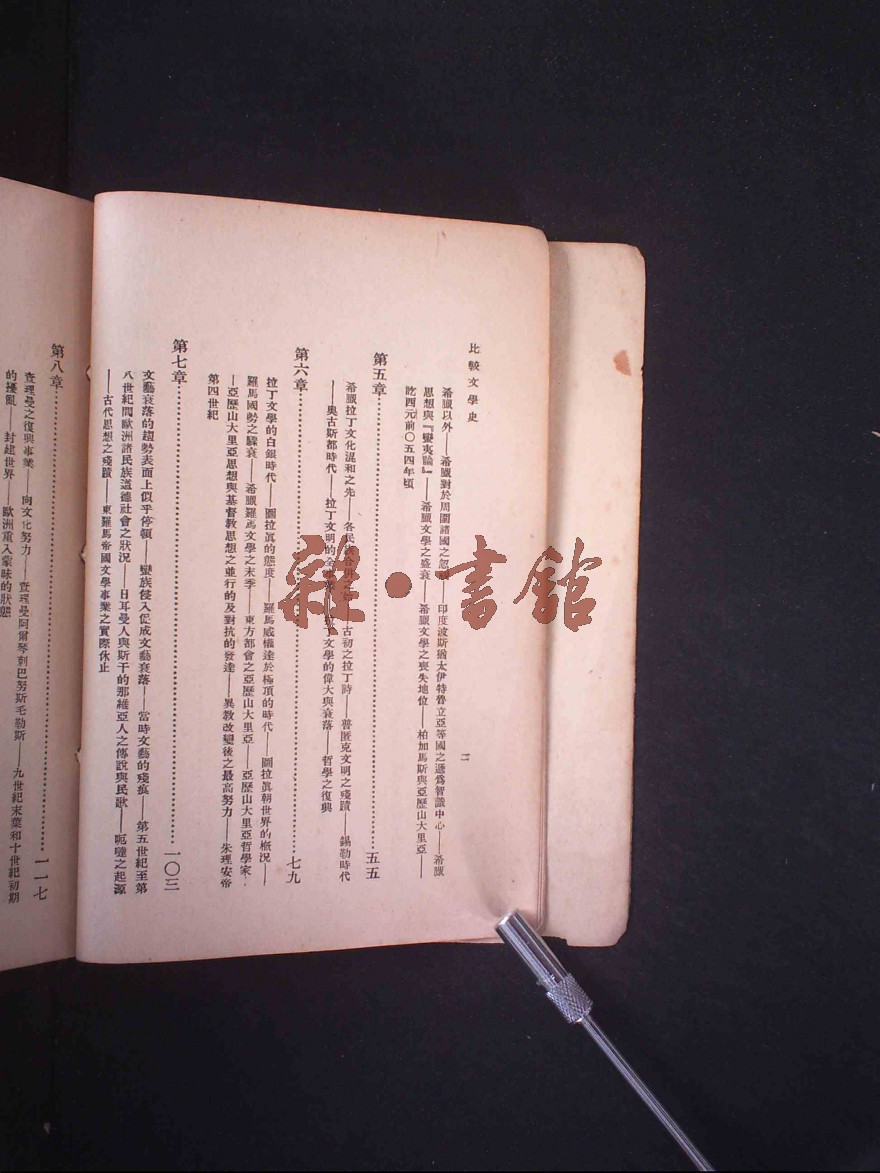 比較文學史
二
希臘以外——希臘對於周圍諸國之忽——印度波斯猶太伊特魯立亞等國之遞爲智識中心——希臘
思想與『蠻夷論』——希臘文學之盛衰——希臘文學之喪失地位——柏加馬斯與亞歷山大里亞——
訖西元前〇五四年頃
第五章……五五
希臘拉丁文化混和之先——各民族——古初之拉丁詩——普匿克文明之殘蹟——錫勒時代
——奧古斯都時代——拉丁文明的全——丁文學的偉大與衰落——哲學之復興
第六章……七九
拉丁文學的白銀時代——圖拉眞的態度——羅馬威權達於極頂的時代——圖拉眞朝世界的槪況——
羅馬國勢之驟衰——希臘羅馬文學之末季——東方都會之亞歷山大里亞——亞歷山大里亞哲學家
——亞歷山大里亞思想與基督敎思想之並行的及對抗的發達——異敎改變後之最高努力——朱理安帝
第四世紀
第七章……一〇三
文藝衰落的趨勢表面上似乎停頓——蠻族侵入促成文藝衰落——當時文藝的殘痕——第五世紀至第
八世紀間歐洲諸民族道德社會之狀況——日耳曼人與斯干的那維亞人之傳說與民歌——呃噠之起源
——古代思想之殘蹟——東羅馬帝國文學事業之實際休止
第八章……一一七
查理曼之復興事業——向文化努力——查理曼阿爾琴剌巴努斯毛勒斯——九世紀末葉和十世紀初期
的擾亂——封建世界——歐洲重入蒙昧的狀態
雜·書館